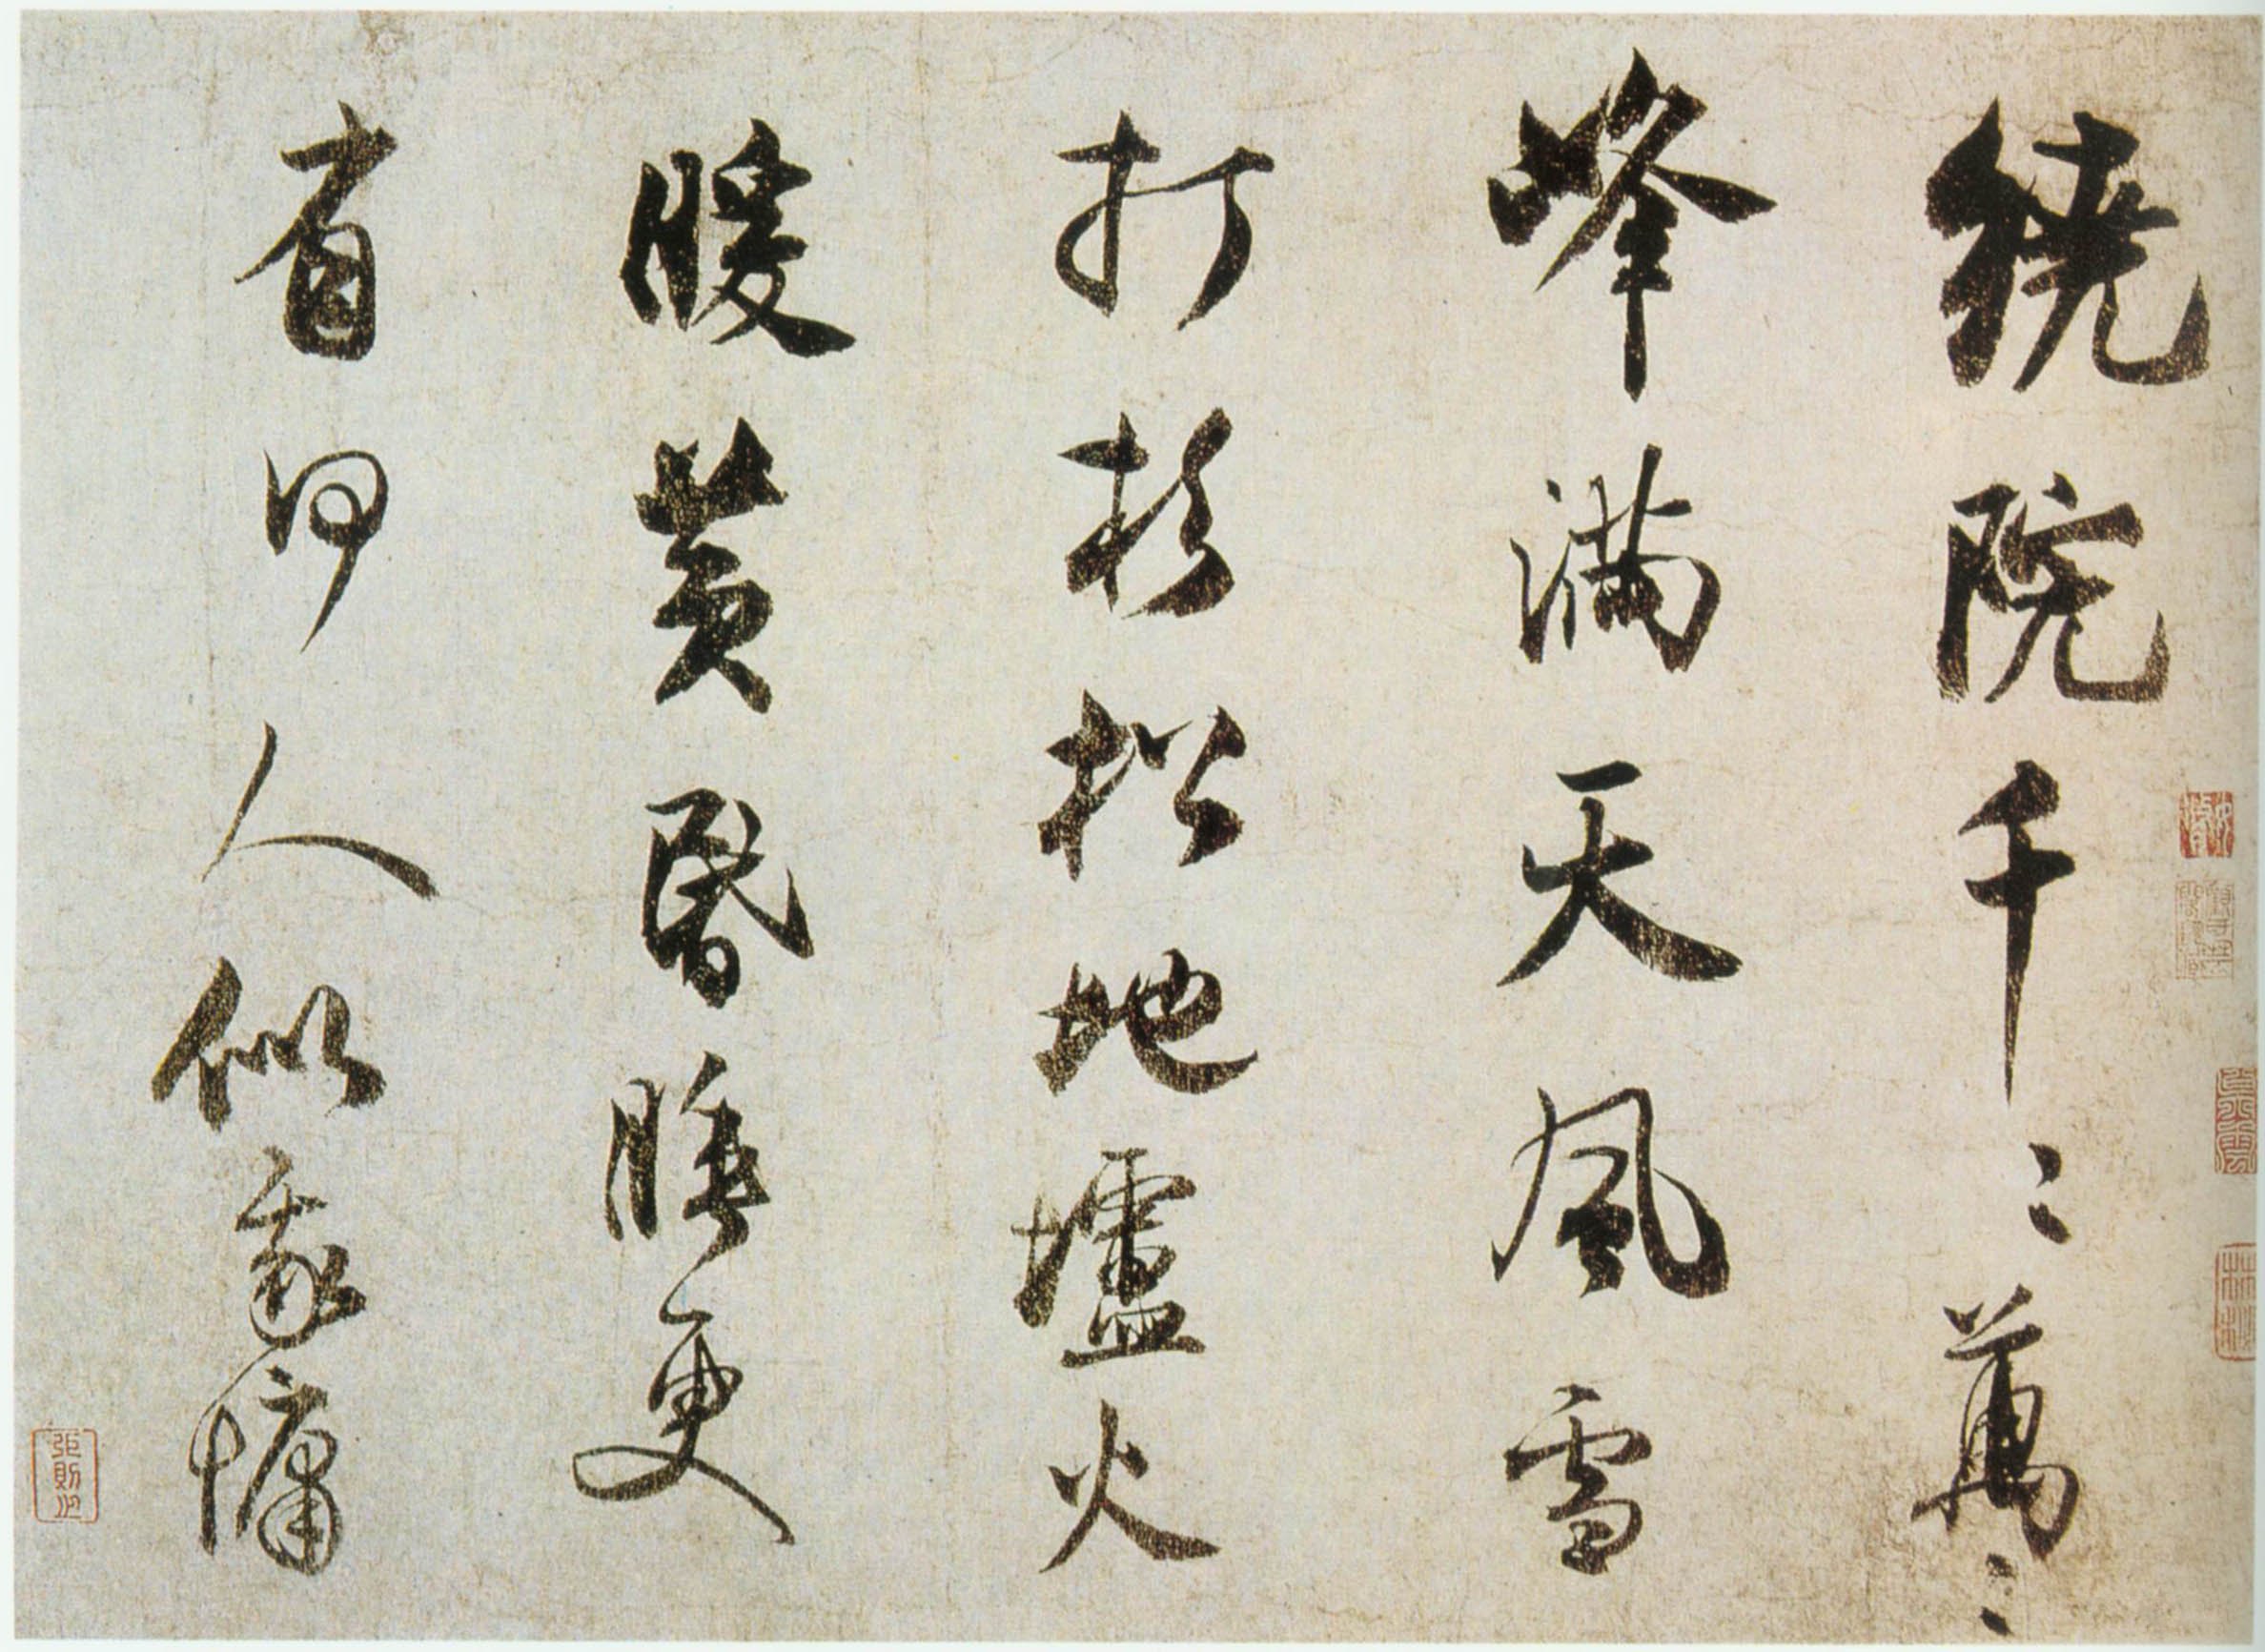 繞院千〻萬〻
峰滿天風雪
打杉松地壚火
暖黃昬睡更
有何人似我慵
張則之